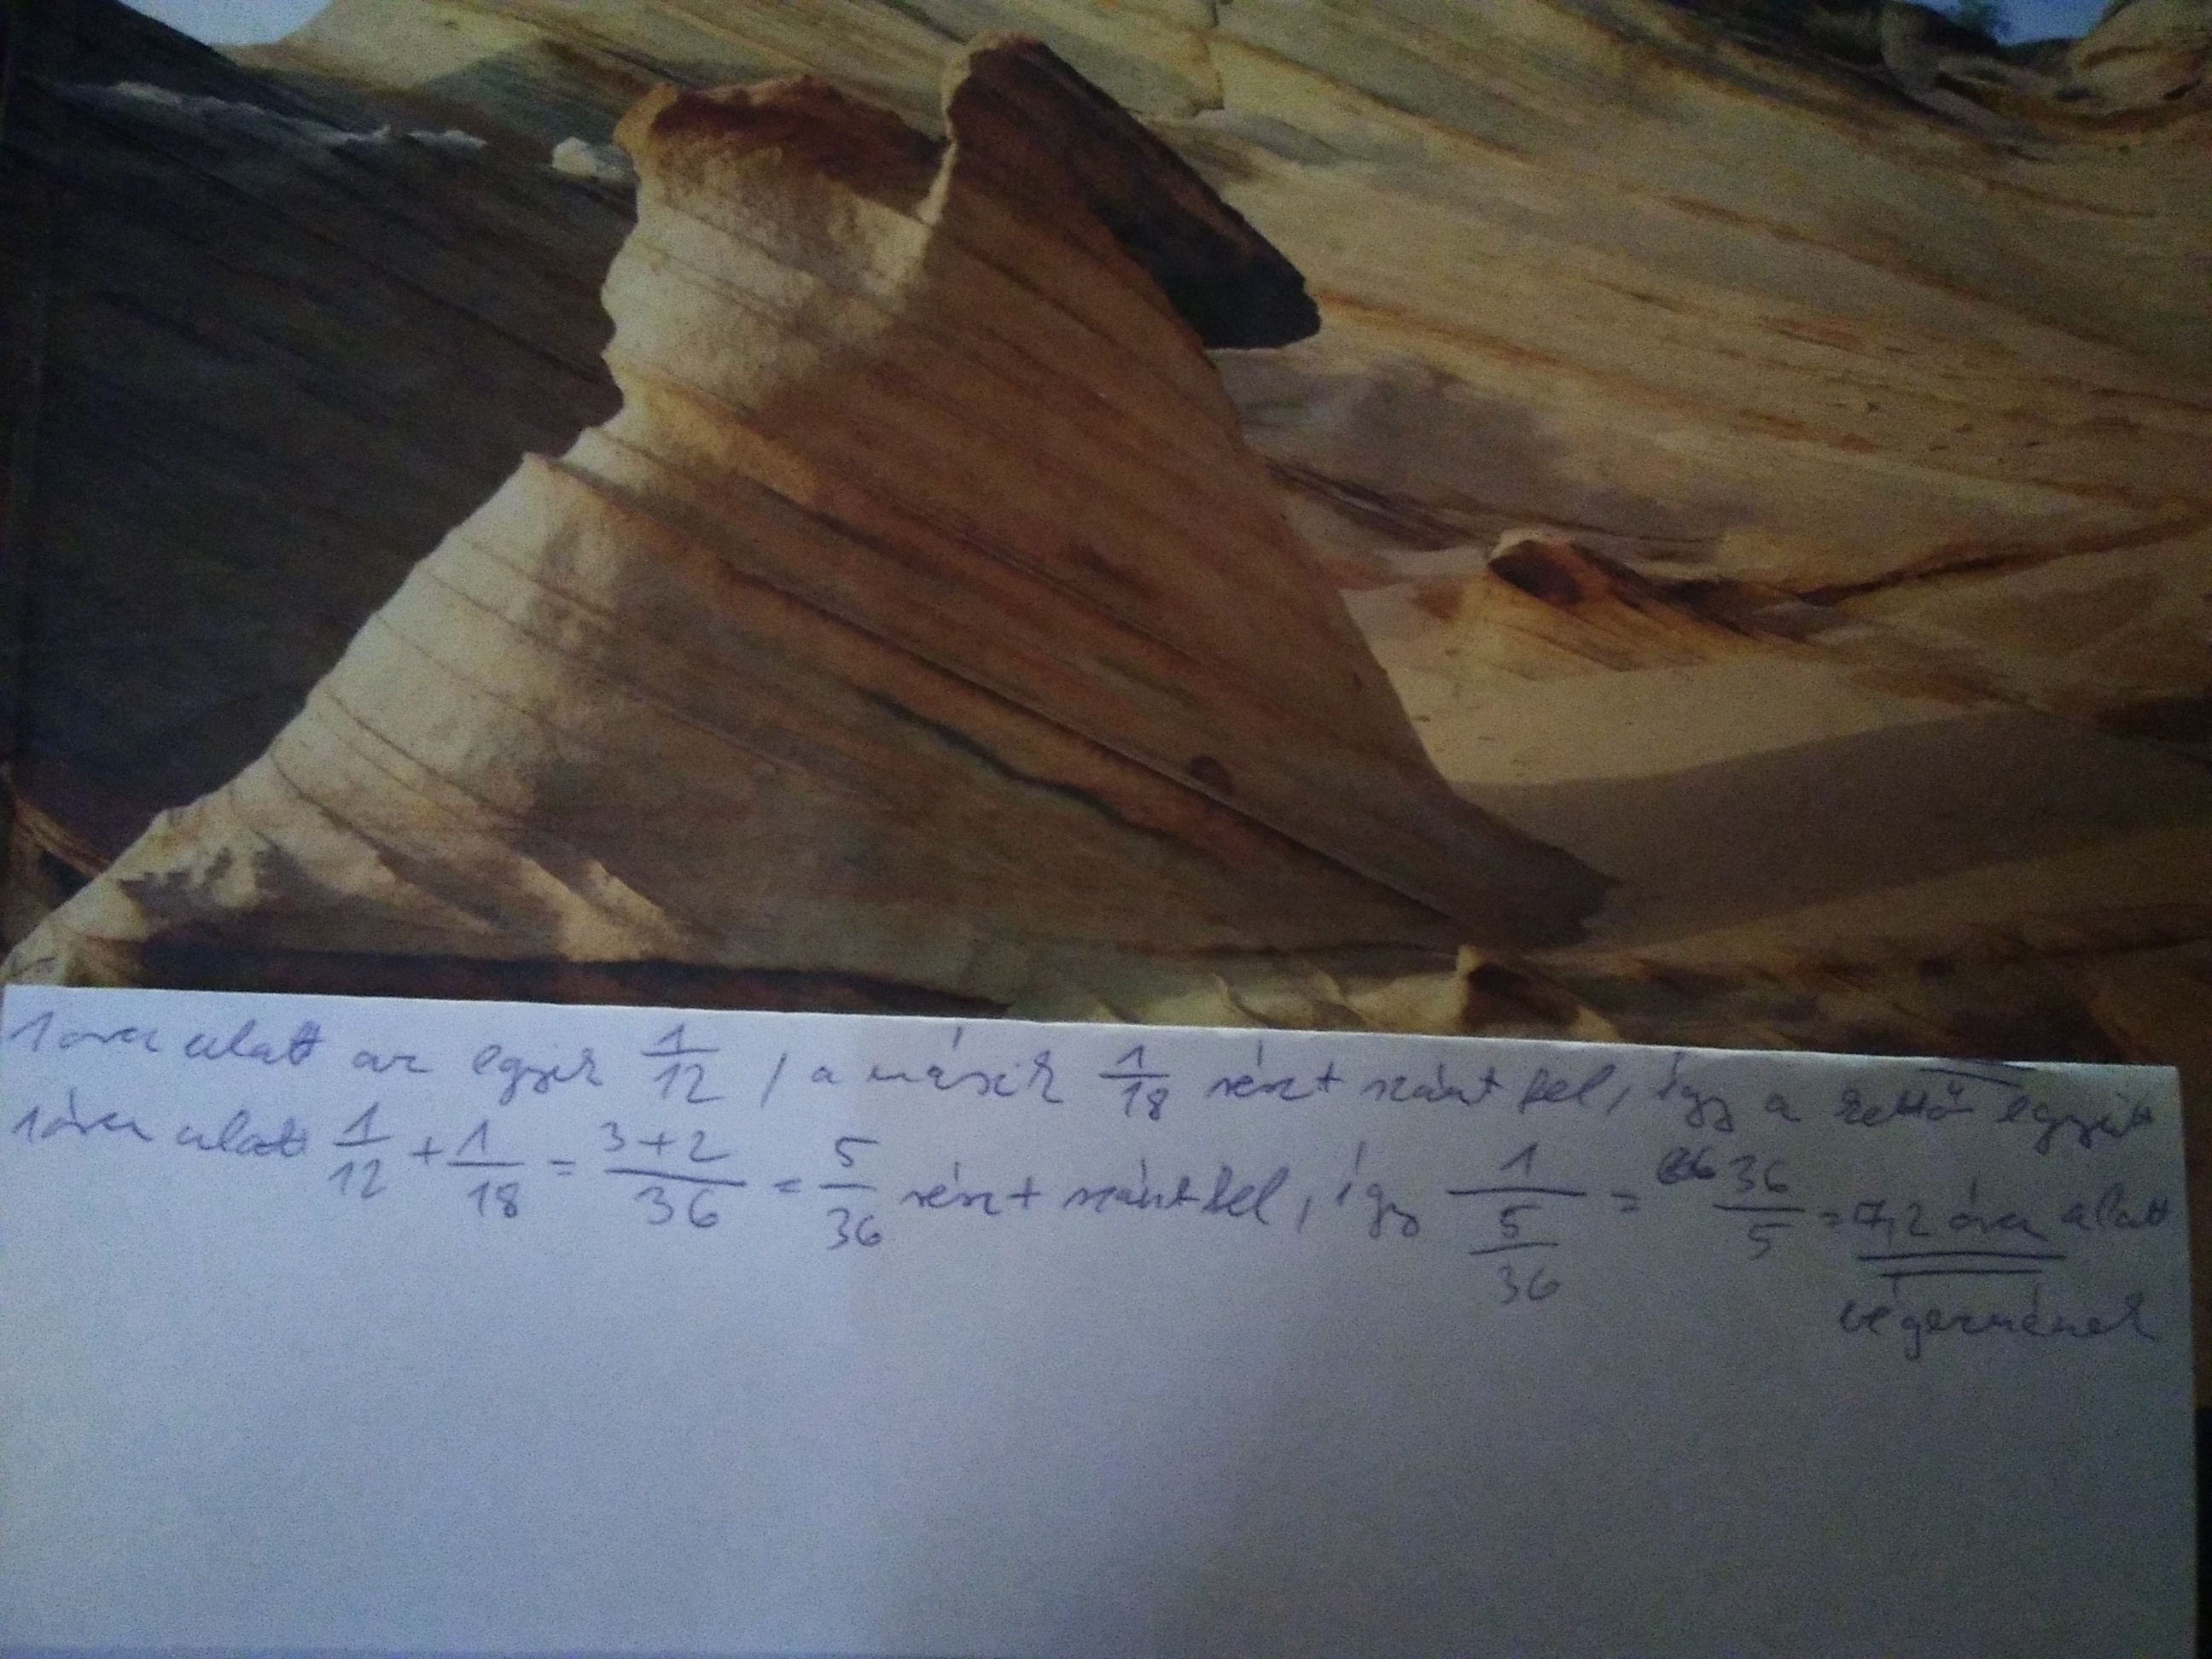 1 óra alatt az egyik 1/12, a másik 1/18 részt szánt fel, így a kettő együtt
1 óra alatt 1/12 + 1/18 = 3+2/36 = 5/36 részt szánt fel, így 1/(5/36) = 36/5 = 7,2 óra alatt
végeznének